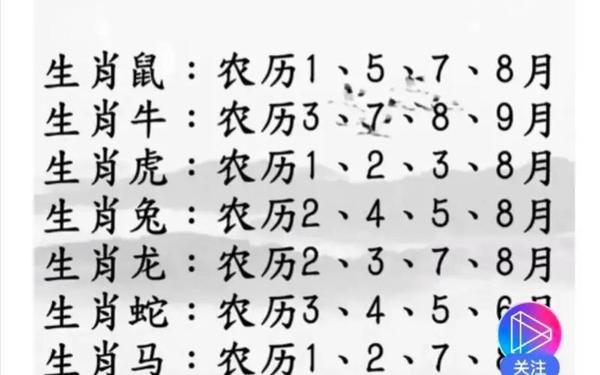 生肖鼠：农历1、5、7、8月
生肖牛：农历3、7、8、9月
生肖虎：农历1、2、3、8月
生肖兔：农历2、4、5、8月
生肖龙：农历2、3、7、8月
生肖蛇：农历3、4、5、6月
生肖马：农历1、2、7、
关注